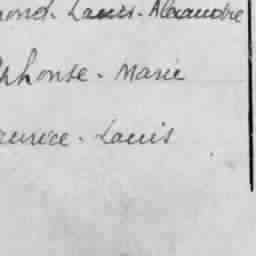 mond. Louis. Alexandre
lphonse. Marie
aurice. Louis